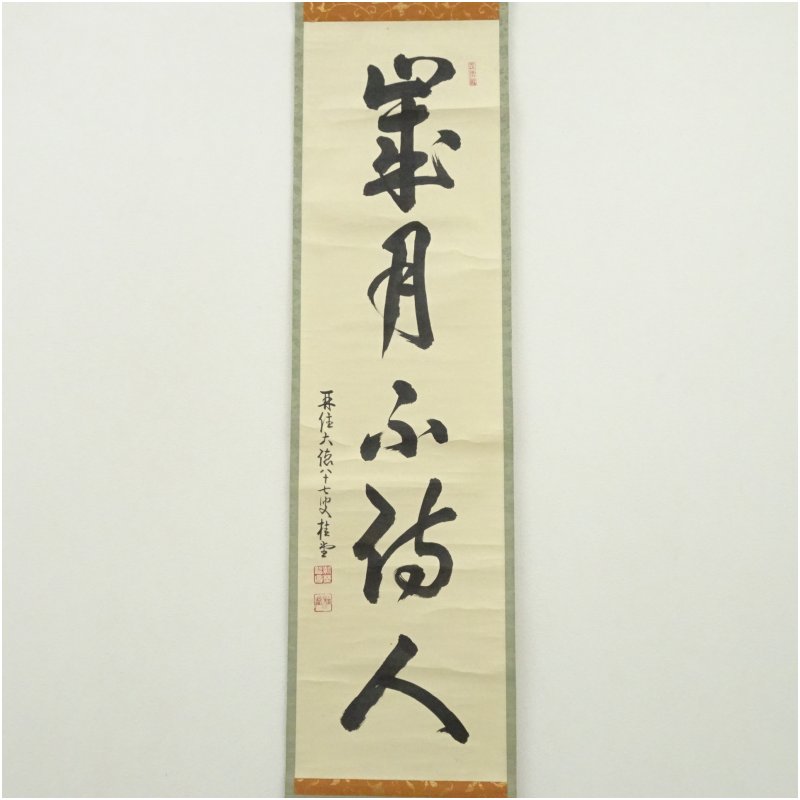 歳月不待人
再住大徳八十七叟桂堂